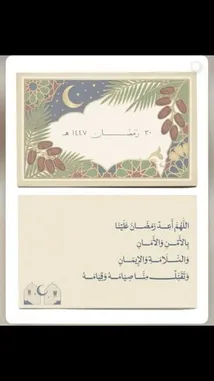 ٣٠ رَمَضَــــان ١٤٤٧ هـ
اللَّهُمَّ أَعِدْ رَمَضَانَ عَلَيْنَا
بِالْأَمْنِ وَالْأَمَانِ
وَالسَّلَامَةِ وَالْإِيمَانِ
وَتَقَبَّلْ مِنَّا صِيَامَهُ وَقِيَامَهُ